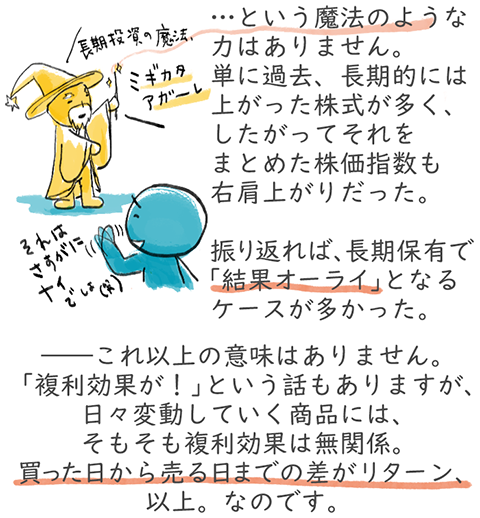 …という魔法のような
力はありません。
長期投資の魔法、
ミギカタ
アガーレ
単に過去、長期的には
上がった株式が多く、
したがってそれを
まとめた株価指数も
右肩上がりだった。
それは
さすがに
ナイ
でしょ(笑)
振り返れば、長期保有で
「結果オーライ」となる
ケースが多かった。
――これ以上の意味はありません。
「複利効果が！」という話もありますが、
日々変動していく商品には、
そもそも複利効果は無関係。
買った日から売る日までの差がリターン、
以上。なのです。